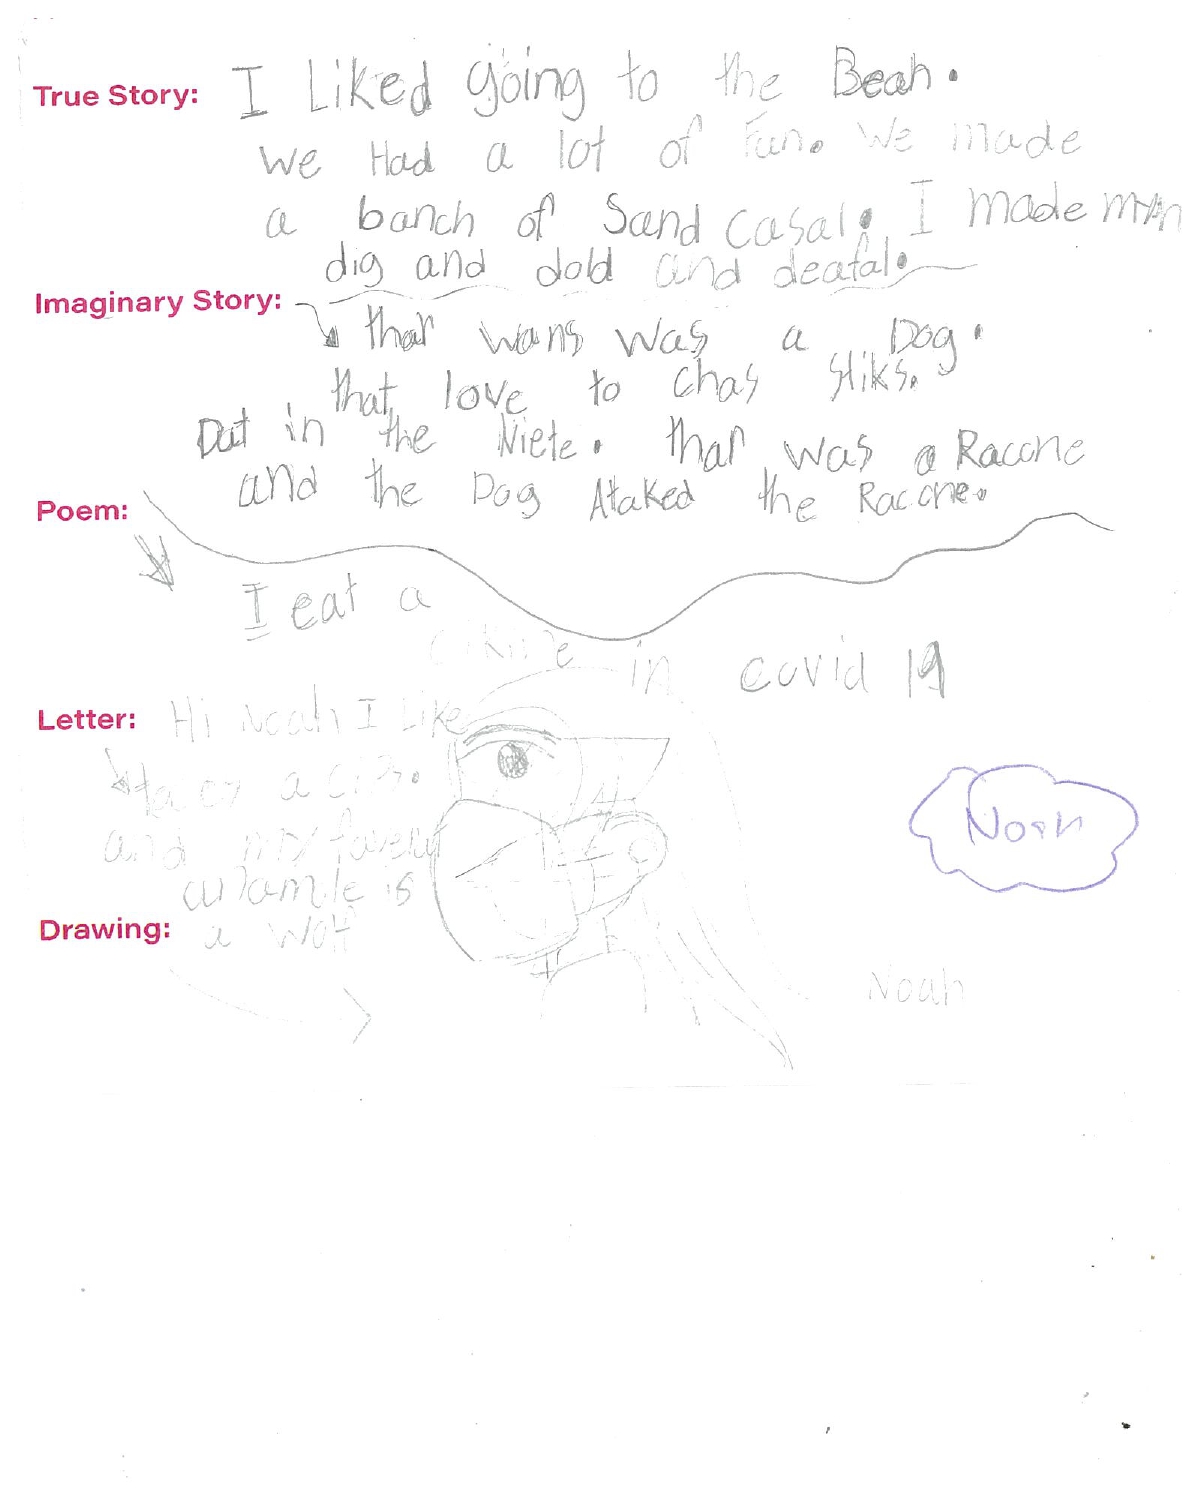 True Story: I Liked going to the Beah.
we Had a lot of Fun. We made
a banch of Sand casal. I made
dig and dold and deafal.
Imaginary Story:
thar wans was a Dog.
that love to chas stiks.
Dat in the Niete. thar was a Racone
and the Dog Ataked the Racone.
Poem:
I eat a
in covid 19
Letter: Hi Noah I Like
a
and my
is
Drawing: a Wolf
Noah
Noah